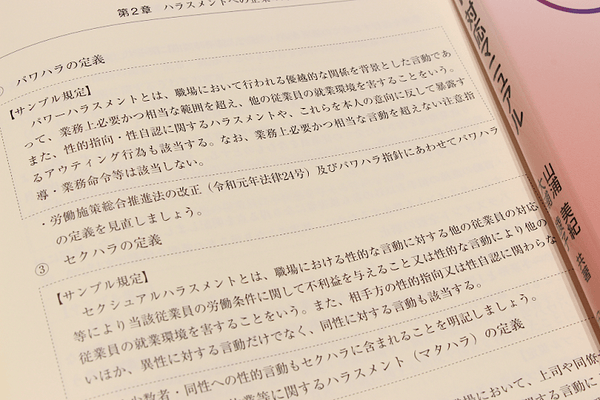 第2章 ハラスメントへの企業
パワハラの定義
【サンプル規定】
パワーハラスメントとは、職場において行われる優越的な関係を背景とした言動であ
って、業務上必要かつ相当な範囲を超え、他の従業員の就業環境を害することをいう。
また、性的指向・性自認に関するハラスメントや、これらを本人の意向に反して暴露す
るアウティング行為も該当する。なお、業務上必要かつ相当な言動を超えない注意指
導・業務命令等は該当しない。
・労働施策総合推進法の改正（令和元年法律24号）及びパワハラ指針にあわせてパワハラ
の定義を見直しましょう。
③ セクハラの定義
【サンプル規定】
セクシュアルハラスメントとは、職場における性的な言動に対する他の従業員の対応
等により当該従業員の労働条件に関して不利益を与えること又は性的な言動により他の
従業員の就業環境を害することをいう。また、相手方の性的指向又は性自認に関わらな
いほか、異性に対する言動だけでなく、同性に対する言動も該当する。
少数者・同性への性的言動もセクハラに含まれることを明記しましょう。
業等に関するハラスメント（マタハラ）の定義
職場において、上司や同僚
対応マニュアル
山浦 美紀
共編